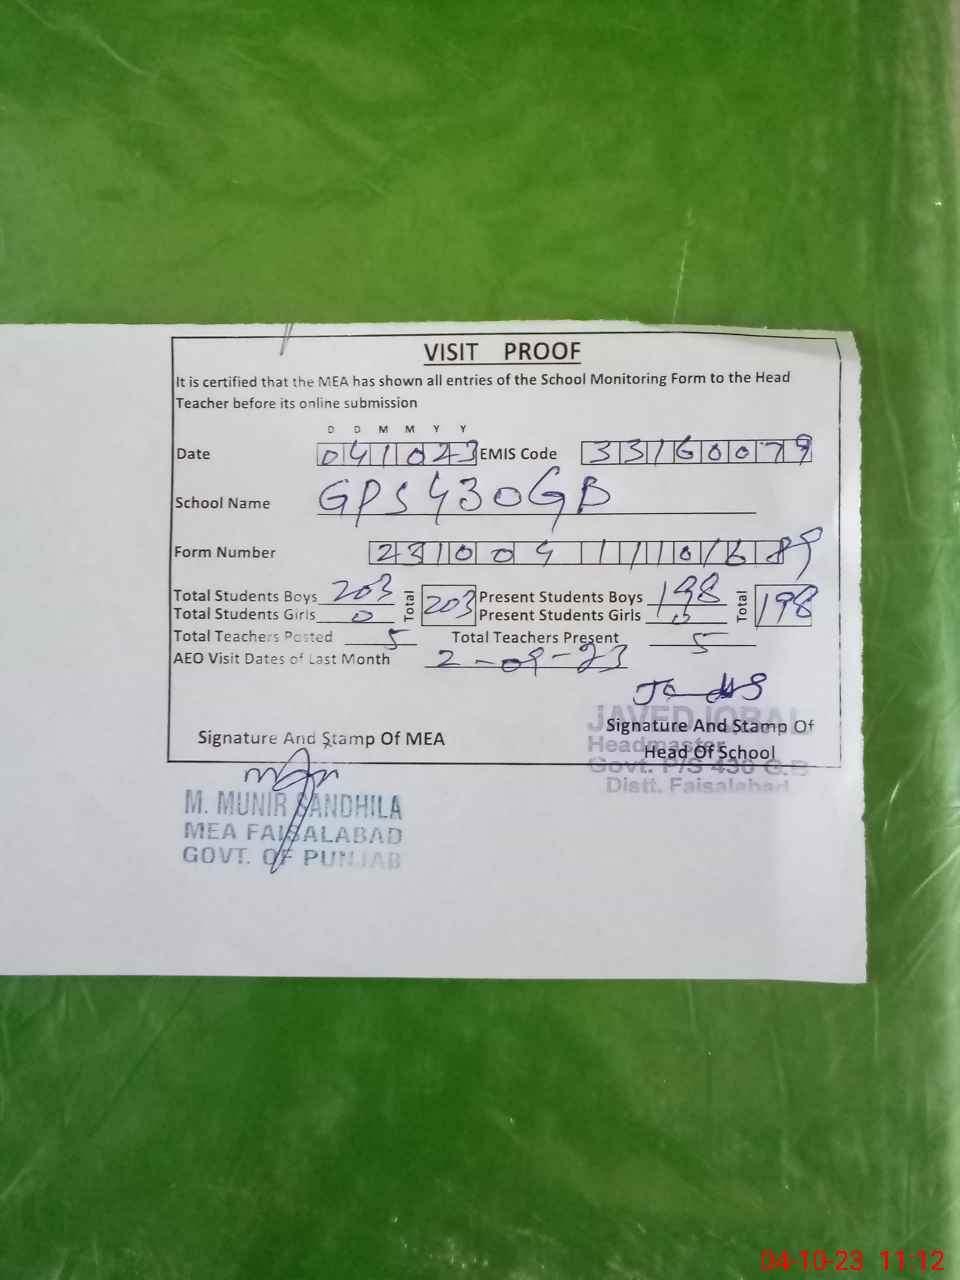 VISIT PROOF
It is certified that the MEA has shown all entries of the School Monitoring Form to the Head
Teacher before its online submission
D D M M Y Y
Date 041023 EMIS Code 33160079
School Name GPS 430 GB
Form Number
Total Students Boys 203 Total 203 Present Students Boys 198 Total 198
Total Students Girls 0 Present Students Girls 0
Total Teachers Posted 5 Total Teachers Present 5
AEO Visit Dates of Last Month 2-09-23
JAVED IQBAL
Signature And Stamp Of
Signature And Stamp Of MEA
Headmaster
Head Of School
Govt. P/S 430 G.B
Distt. Faisalabad
M. MUNIR SANDHILA
MEA FAISALABAD
GOVT. OF PUNJAB
04-10-23 11:12